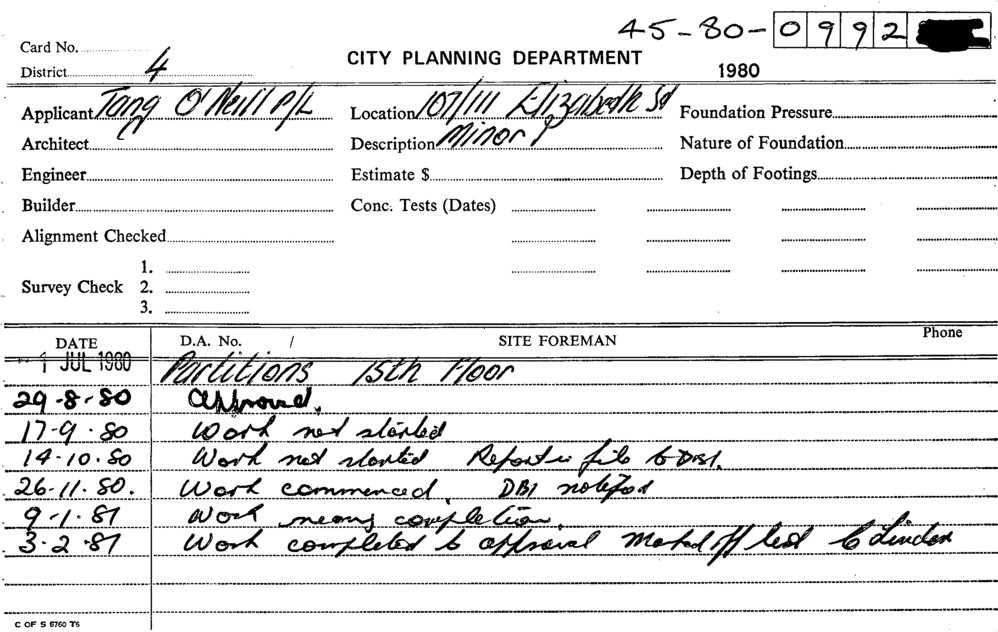 45-80-0992
Card No.
CITY PLANNING DEPARTMENT
1980
District 4
Applicant Tang O'Neill P/L
Location 107/111 Elizabeth St
Foundation Pressure
Architect
Description Minor
Nature of Foundation
Engineer
Estimate $
Depth of Footings
Builder
Conc. Tests (Dates)
Alignment Checked
1.
Survey Check 2.
3.
DATE
D.A. No. /
SITE FOREMAN
Phone
1 JUL 1980 Partitions 15th Floor
29-8-80 Approved.
17-9-80 Work not started
14-10-80 Work not started Report in file to DBI.
26-11-80. Work commenced. DBI notified
9-1-81 Work nearing completion.
3-2-81 Work completed to approval Marked off list
C OF S 6760 T6